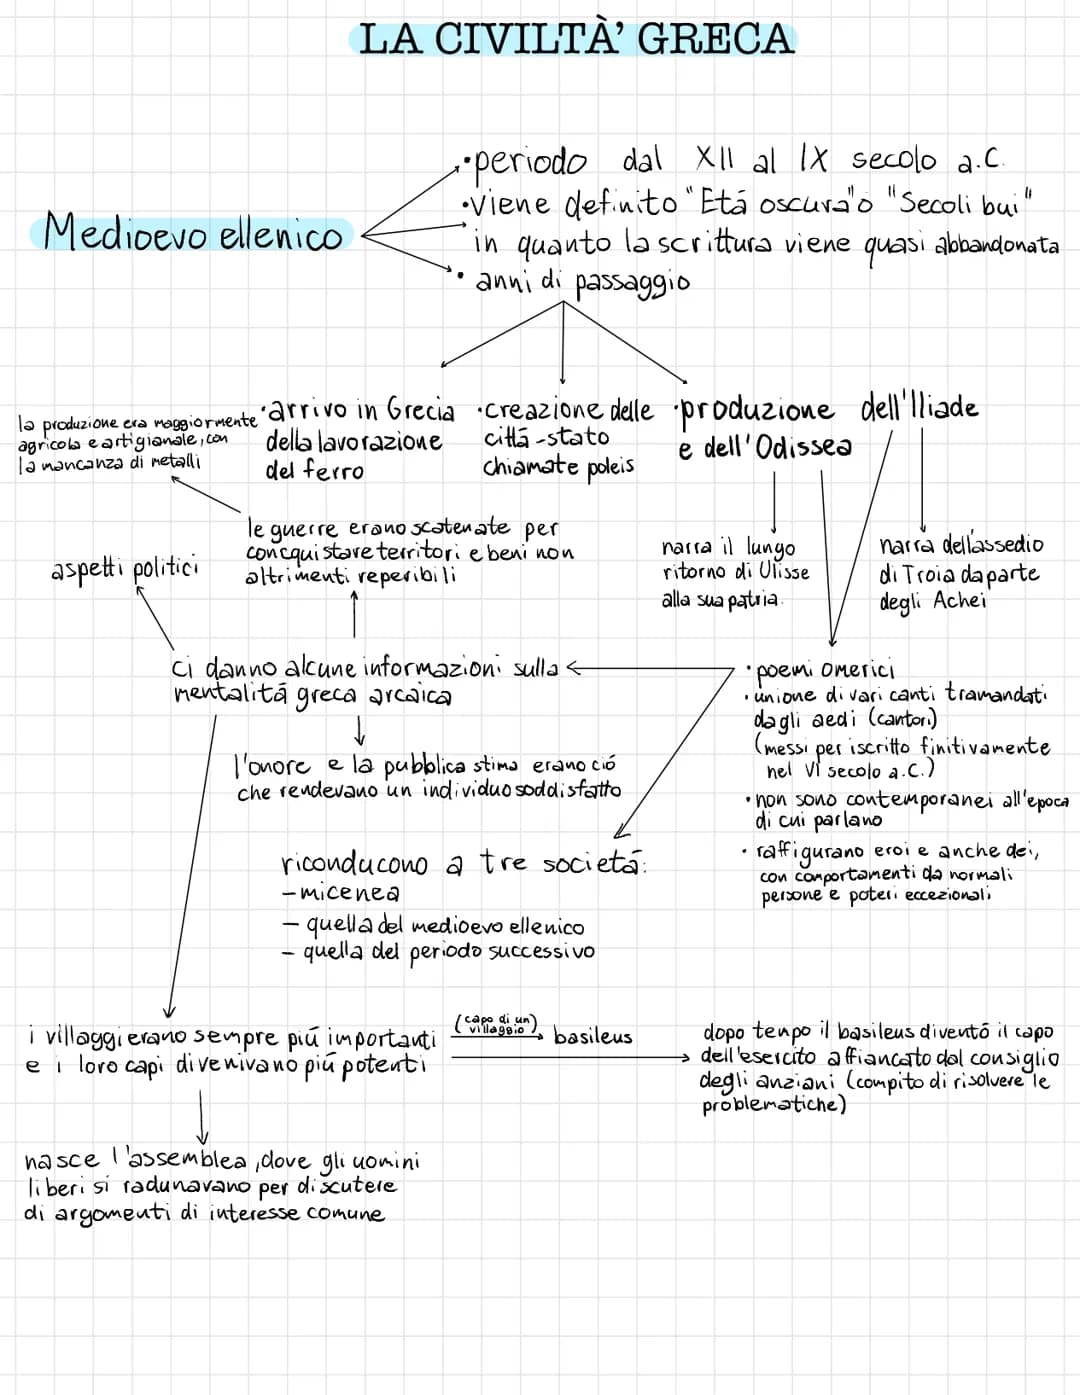 LA CIVILTÀ' GRECA
Medioevo ellenico
•periodo dal XII al IX secolo a.C.
•viene definito "Etá oscura" o "Secoli bui"
in quanto la scrittura viene quasi abbandonata
• anni di passaggio
la produzione era maggiormente
agricola e artigianale, con
la mancanza di metalli
•arrivo in Grecia
della lavorazione
del ferro
•creazione delle
cittá-stato
chiamate poleis
•produzione dell'Iliade
e dell'Odissea
aspetti politici
le guerre erano scatenate per
concquistare territori e beni non
altrimenti reperibili
narra il lungo
ritorno di Ulisse
alla sua patria.
narra dell'assedio
di Troia da parte
degli Achei
ci danno alcune informazioni sulla
mentalitá greca arcaica
l'onore e la pubblica stima erano ció
che rendevano un individuo soddisfatto
•poemi omerici
•unione di vari canti tramandati
dagli aedi (cantori)
(messi per iscritto finitivamente
nel VI secolo a.C.)
•non sono contemporanei all'epoca
di cui parlano
• raffigurano eroi e anche dei,
con comportamenti da normali
persone e poteri eccezionali
riconducono a tre societá:
-micenea
- quella del medioevo ellenico
- quella del periodo successivo
i villaggi erano sempre piú importanti
e i loro capi divenivano piú potenti
(capo di un
villaggio)
basileus
dopo tempo il basileus diventó il capo
dell'esercito affiancato dal consiglio
degli anziani (compito di risolvere le
problematiche)
nasce l'assemblea, dove gli uomini
liberi si radunavano per discutere
di argomenti di interesse comune